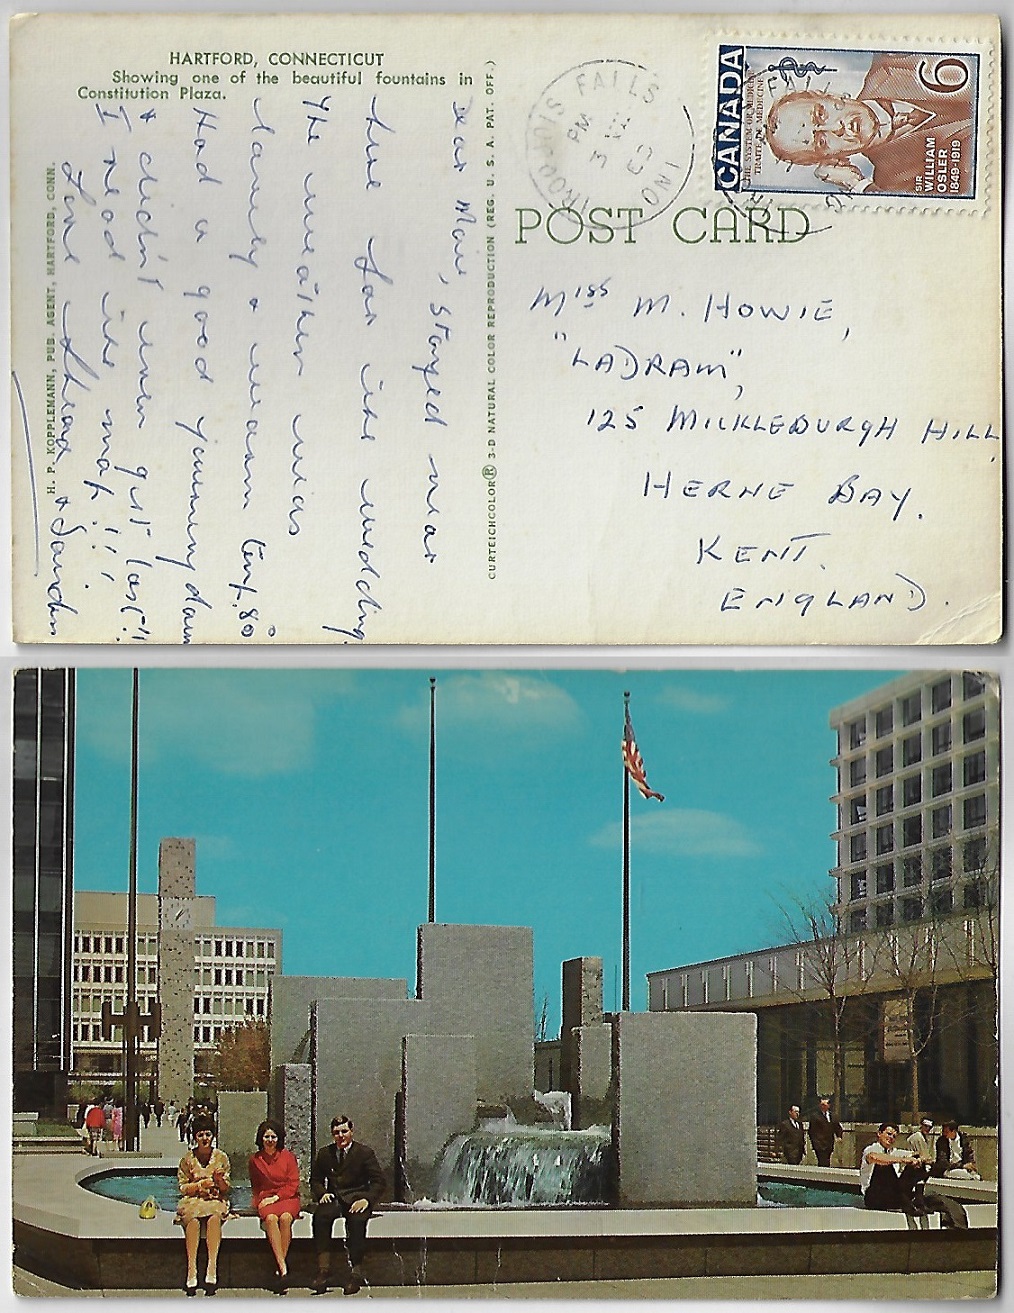 HARTFORD, CONNECTICUT
Showing one of the beautiful fountains in
Constitution Plaza.
Dear Marie, Stayed near
here for the wedding.
The weather was
lovely & warm temp. 80°
Had a good journey down
& didn't even get lost!!
I read the map!!!
Love Sheila &
H. P. KOPPLEMANN, PUB. AGENT, HARTFORD, CONN.
CURTEICHCOLOR® 3-D NATURAL COLOR REPRODUCTION (REG. U. S. A. PAT. OFF.)
IROQUOIS FALLS
PM
ONT
CANADA
6
THE SYSTEM OF MEDICINE
TRAITÉ DE MÉDECINE
SIR
WILLIAM
OSLER
1849-1919
POST CARD
Miss M. HOWIE,
"LADRAM",
125 MICKLEBURGH HILL
HERNE BAY.
KENT.
ENGLAND.